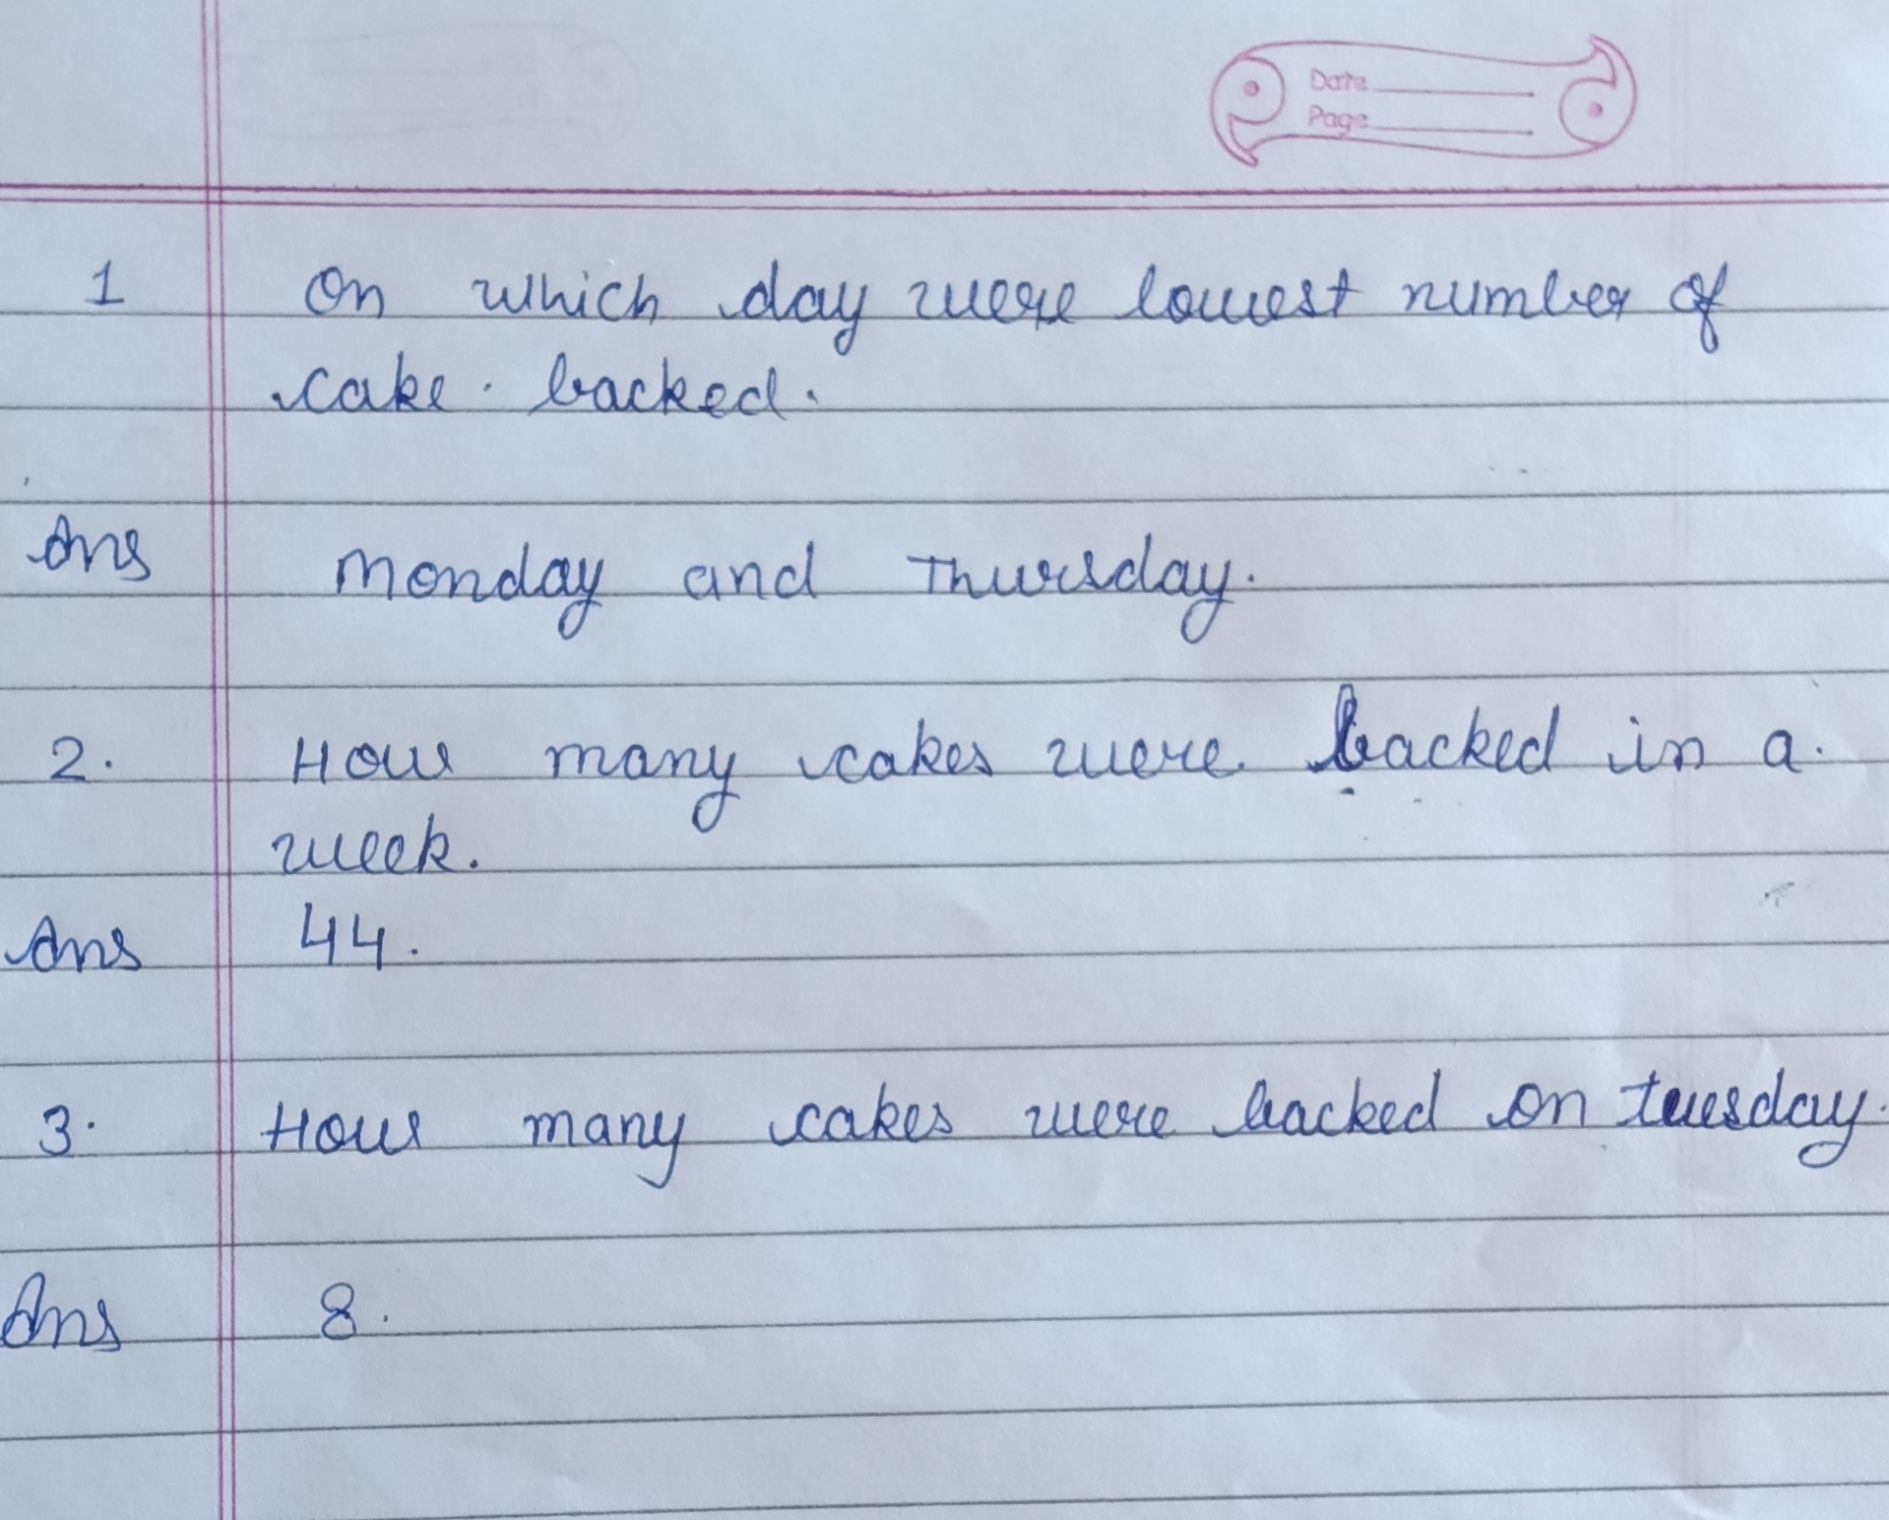 Date
Page
1 On which day were lowest number of
cake. backed.
Ans Monday and Thursday.
2. How many cakes were backed in a.
week.
Ans 44.
3. How many cakes were backed on tuesday.
Ans 8.